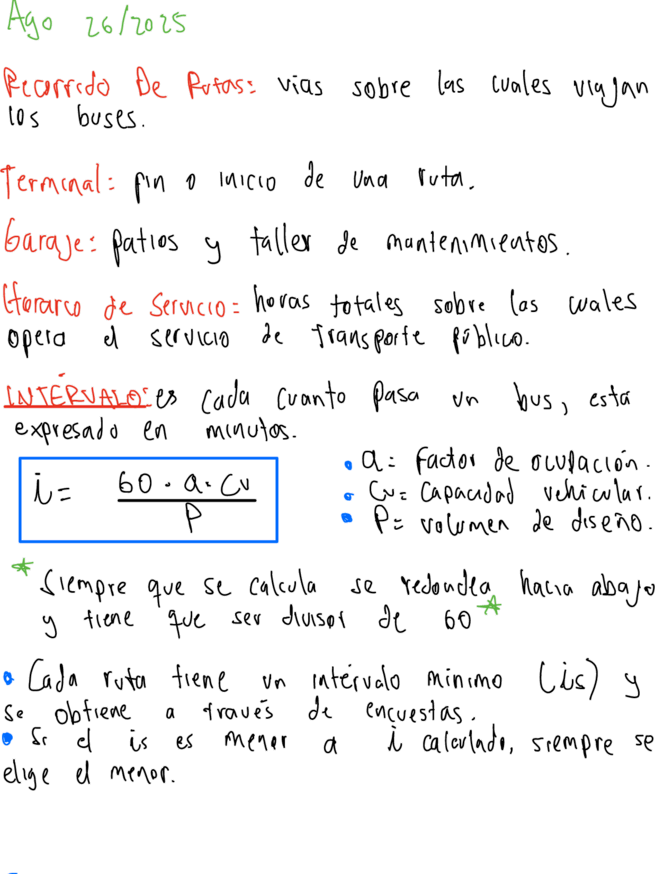 Ago 26/2025
Recorrido De Rutas: vías sobre las cuales viajan
los buses.
Terminal: fin o inicio de una ruta.
Garaje: patios y taller de mantenimientos.
Horario de Servicio: horas totales sobre las cuales
opera el servicio de Transporte público.
INTÉRVALO: es cada cuanto pasa un bus, está
expresado en minutos.
i = 60 · a · Cv / P
• a = factor de ocupación.
• Cv = Capacidad vehicular.
• P = volumen de diseño.
* Siempre que se calcula se redondea hacia abajo
y tiene que ser divisor de 60 *
• Cada ruta tiene un intérvalo mínimo (is) y
se obtiene a través de encuestas.
• Si el is es menor a i calculado, siempre se
elige el menor.